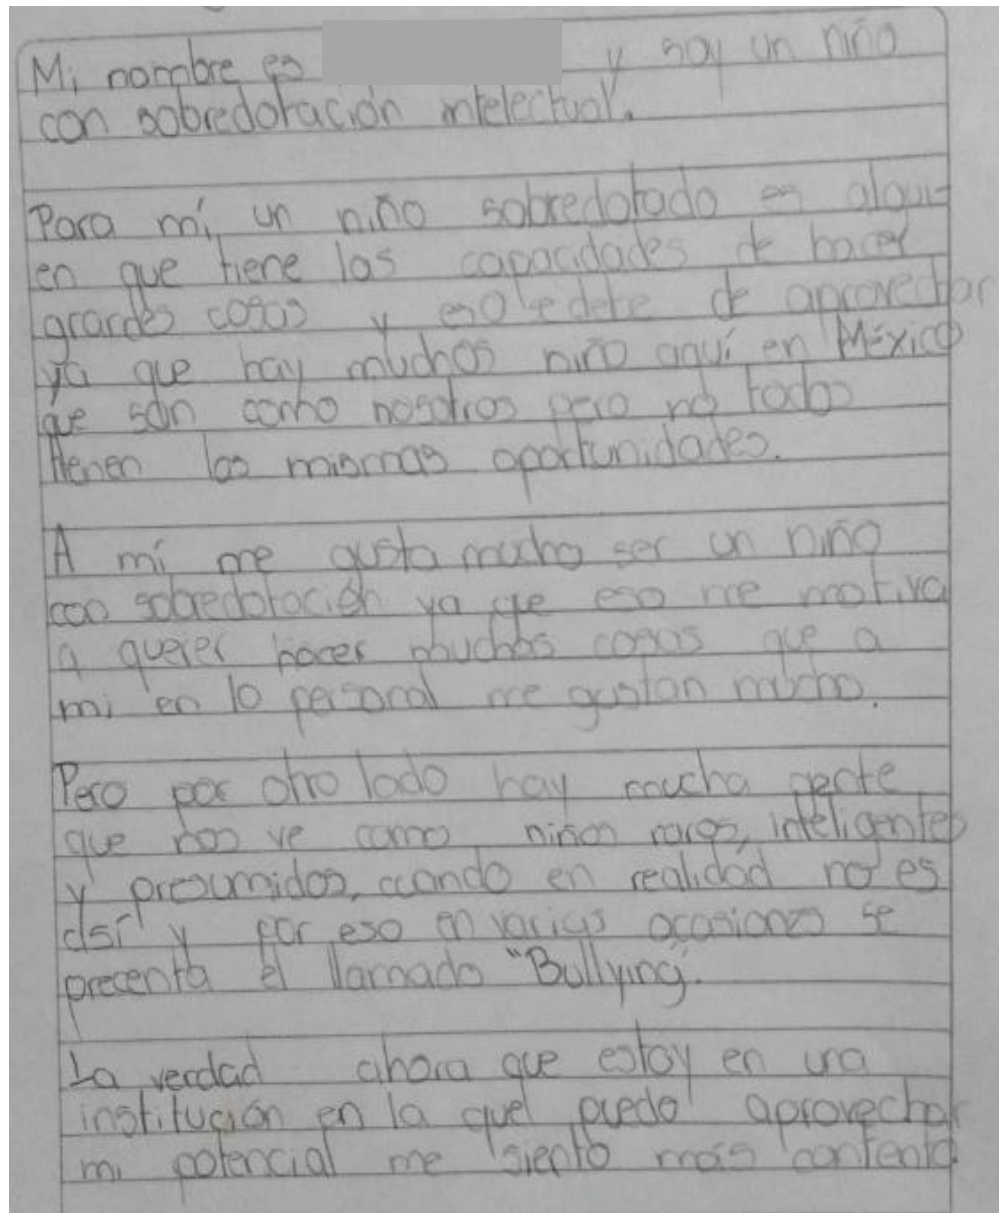 Mi nombre es y soy un niño
con sobredotación intelectual.
Para mí, un niño sobredotado es algui-
en que tiene las capacidades de hacer
grandes cosas y eso se debe de aprovechar
ya que hay muchos niño aquí en México
que son como nosotros pero no todos
tienen las mismas oportunidades.
A mí me gusta mucho ser un niño
con sobredotación ya que eso me motiva
a querer hacer muchas cosas que a
mi en lo personal me gustan mucho.
Pero por otro lado hay mucha gente
que nos ve como niños raros, inteligentes
y presumidos, cuando en realidad no es
así y por eso en varias ocasiones se
precenta el llamado "Bullying".
La verdad ahora que estoy en una
institución en la que puedo aprovechar
mi potencial me siento más contento